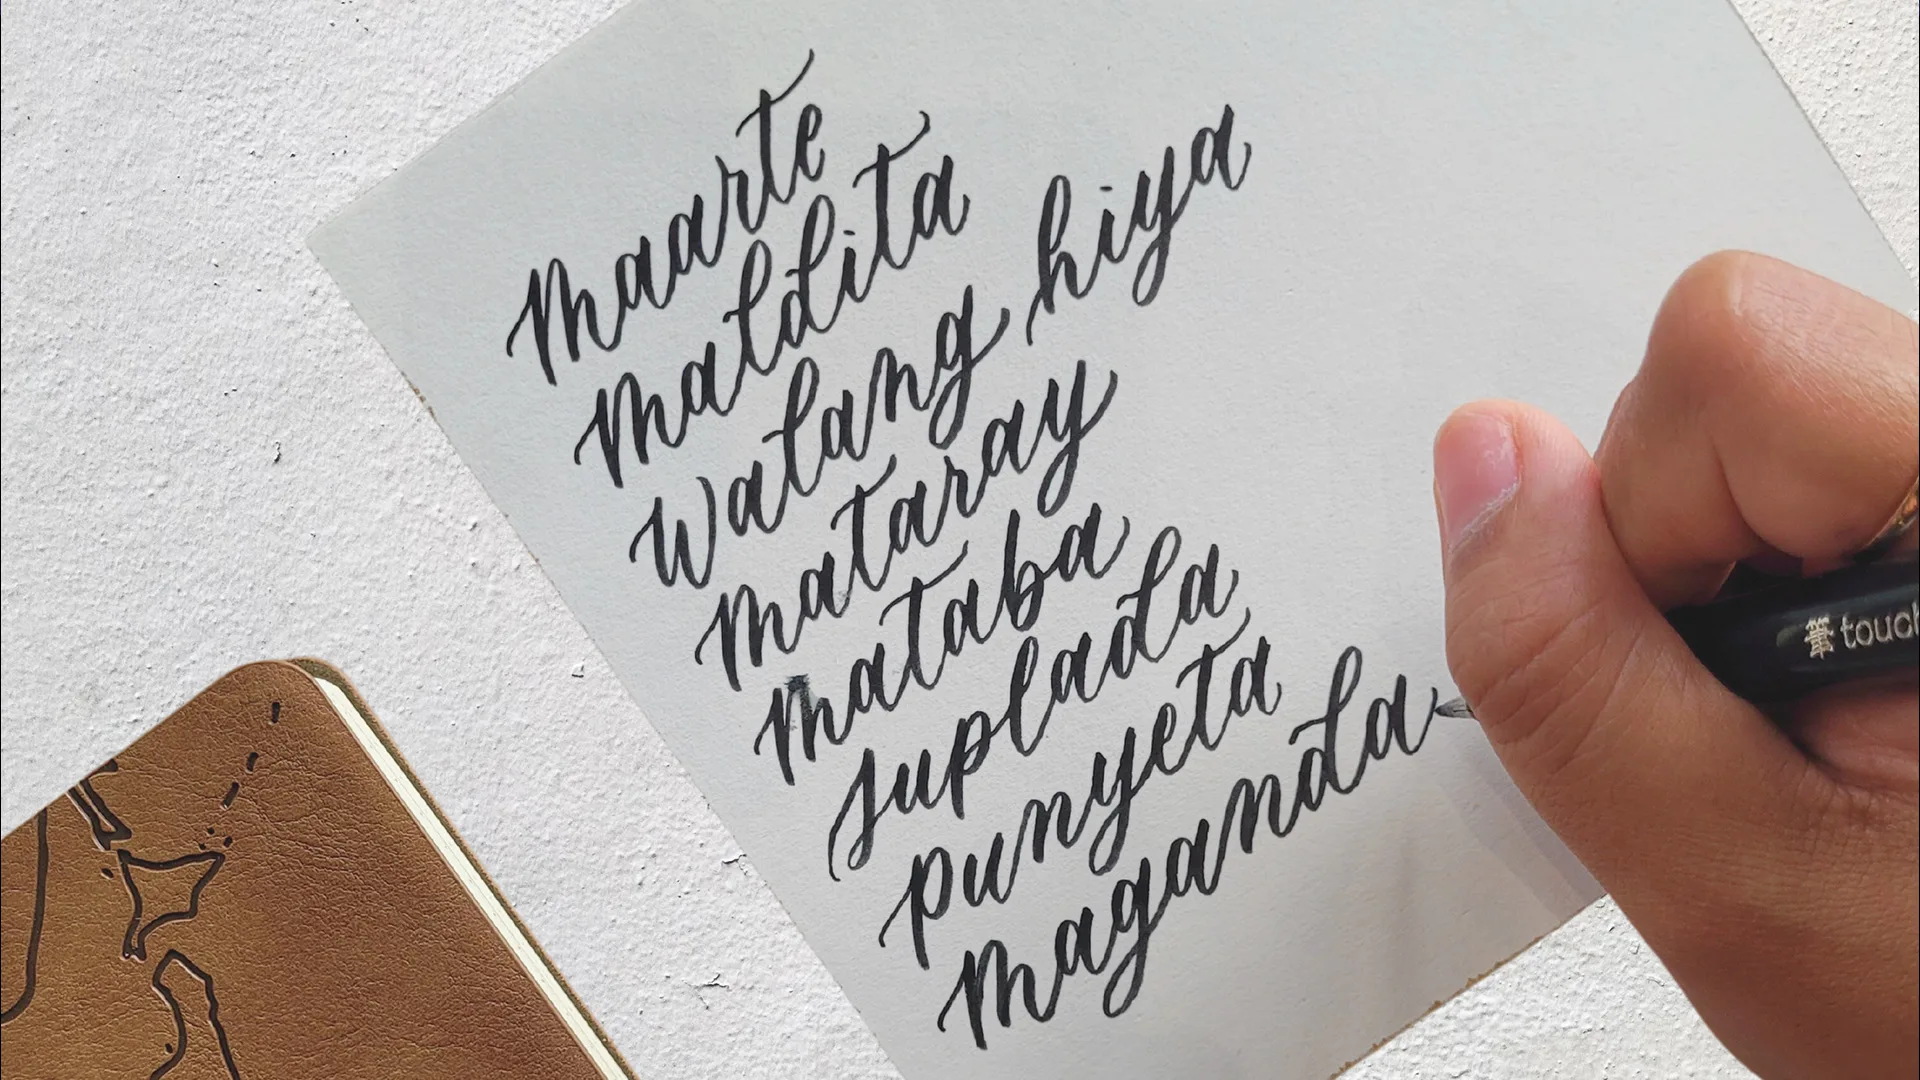 maarte
maldita
walang hiya
mataray
mataba
suplada
punyeta
maganda
筆touch